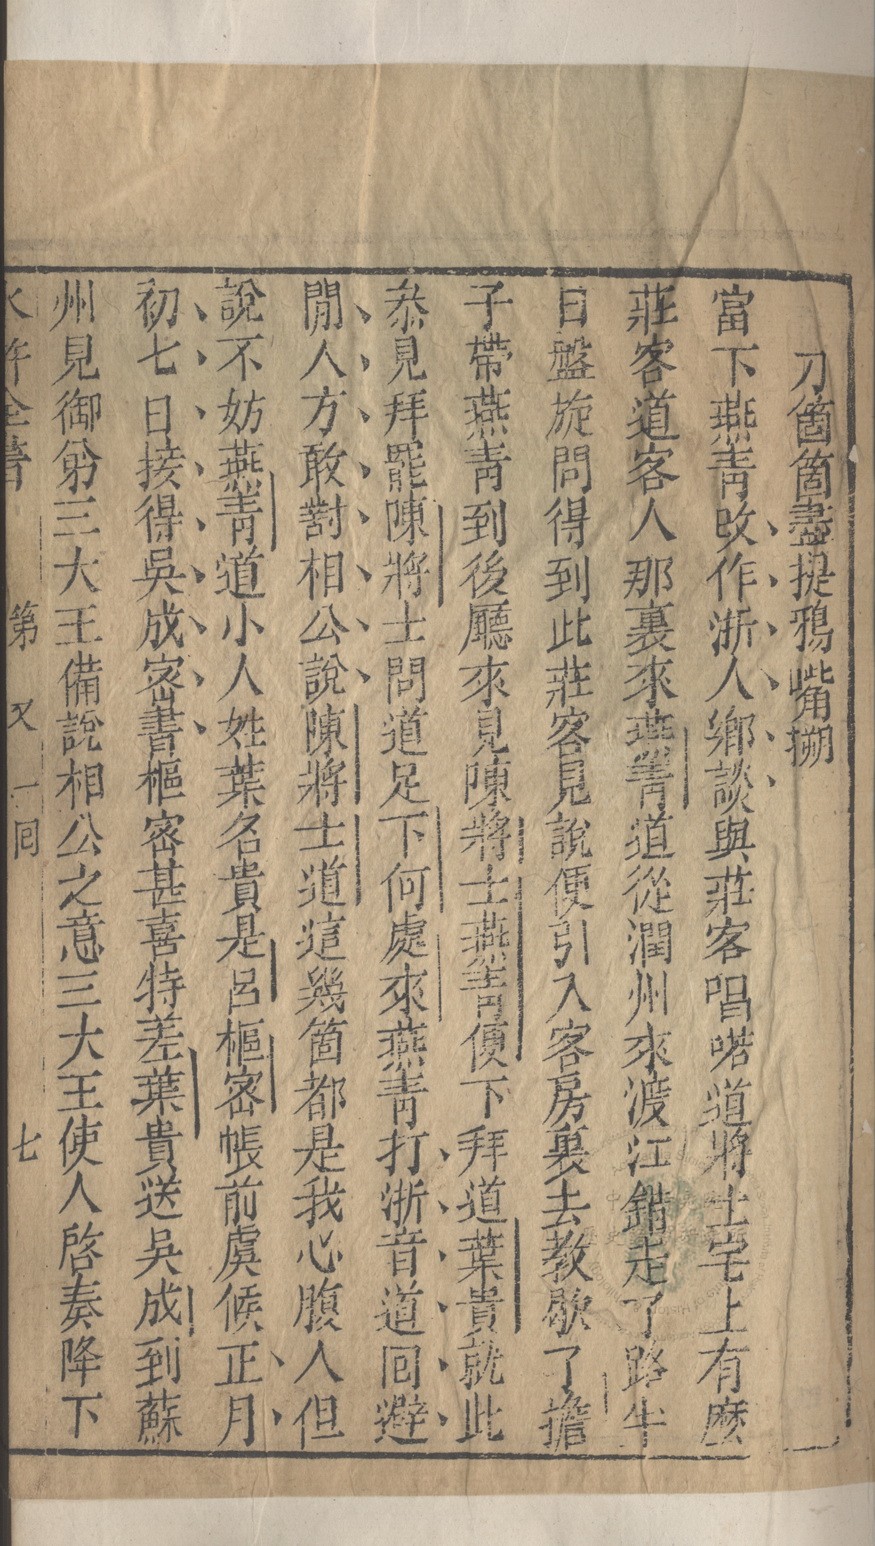 刀箇箇盡提鴉嘴搠
當下燕青改作浙人鄉談與莊客唱喏道將士宅上有麽
莊客道客人那裏來燕青道從潤州來渡江錯走了路半
日盤旋問得到此莊客見說便引入客房裏去教歇了擔
子帶燕青到後廳來見陳將士燕青便下拜道葉貴就此
叅見拜罷陳將士問道足下何處來燕青打浙音道回避
閒人方敢對相公說陳將士道這幾箇都是我心腹人但
說不妨燕青道小人姓葉名貴是呂樞密帳前虞候正月
初七日接得吳成密書樞密甚喜特差葉貴送吳成到蘇
州見御弟三大王備說相公之意三大王使人啓奏降下
水滸全書 第 又 一回 七